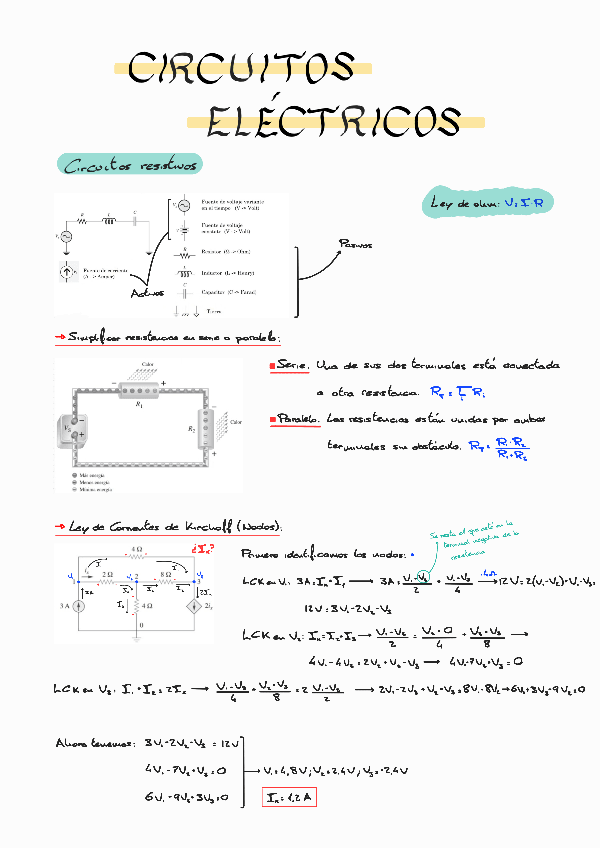 CIRCUITOS
ELÉCTRICOS
Circuitos resistivos
Ley de ohm: V = I·R
Fuente de voltaje variante
en el tiempo (V -> Volt)
Fuente de voltaje
constate (V -> Volt)
R L C
Resistor (R -> Ohm)
Fuente de corriente
(A -> Amper)
Inductor (L -> Henry)
Capacitor (C -> Farad)
Tierra
Activos
Pasivos
→ Simplificar resistencias en serie o paralelo:
Calor
R1
Vs
R2
Calor
Más energía
Menos energía
Mínima energía
Serie. Una de sus dos terminales está conectada
a otra resistencia. RT = Σ Ri
Paralelo. Las resistencias están unidas por ambos
terminales sin obstáculo. RT = R1·R2 / R1+R2
→ Ley de Corrientes de Kirchoff (Nodos):
¿Ix?
4 Ω
2 Ω
8 Ω
3 A
4 Ω
2ix
0
Se resta el que está en la
terminal negativa de la
resistencia
Primero identificamos los nodos:
LCK en V1: 3A = Ix + I1 → 3A = V1-V2 / 2 + V1-V3 / 4 → 12V = 2(V1-V2) + V1-V3
12V = 3V1-2V2-V3
LCK en V2: Ix = I2 + I3 → V1-V2 / 2 = V2-0 / 4 + V2-V3 / 8 →
4V1-4V2 = 2V2+V2-V3 → 4V1-7V2+V3 = 0
LCK en V3: I1 + I2 = 2Ix → V1-V3 / 4 + V2-V3 / 8 = 2 V1-V2 / 2 → 2V1-2V3+V2-V3 = 8V1-8V2 → 6V1+3V3-9V2 = 0
Ahora tenemos: 3V1-2V2-V3 = 12V
4V1-7V2+V3 = 0
→ V1 = 4,8V; V2 = 2,4V; V3 = -2,4V
6V1-9V2+3V3 = 0
Ix = 1,2 A